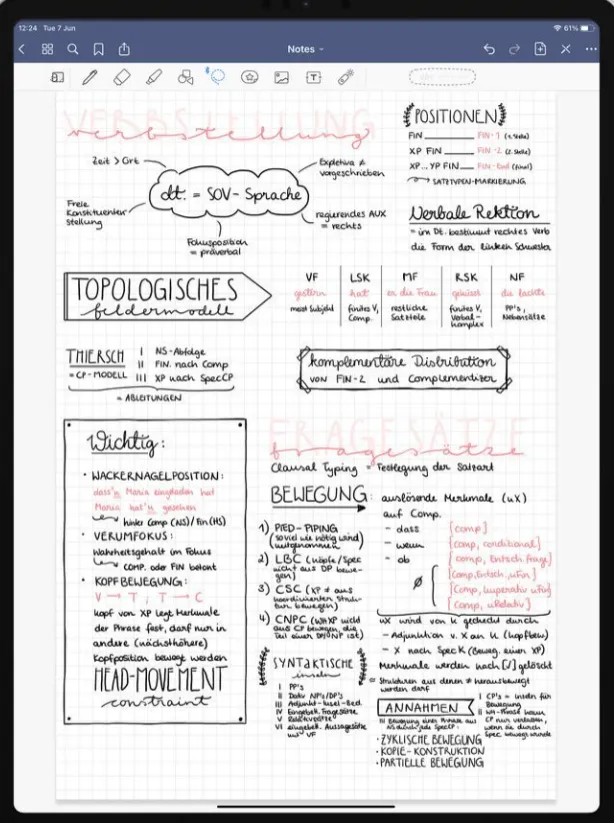 12:24 Tue 7 Jun
61%
Notes
VERBSTELLUNG
verbstellung
Zeit > Ort
Expletiva ≠
vorgeschrieben
dt. = SOV-Sprache
Freie
Konstituenten-
stellung
Fokusposition
= präverbal
regierendes AUX
= rechts
POSITIONEN
FIN FIN-1 (1. Stelle)
XP FIN FIN-2 (2. Stelle)
XP...YP FIN FIN-End (final)
SATZTYPEN-MARKIERUNG
Verbale Rektion
= im Dt. bestimmt rechtes Verb
die Form der linken Schwester
TOPOLOGISCHES
feldermodell
VF LSK MF RSK NF
gestern hat er die Frau geküsst die lachte
meist Subjekt
finites V,
Comp.
restliche
Satzteile
finites V,
Verbal-
komplex
PP's,
Nebensätze
THIERSCH
= CP-MODELL
I NS-Abfolge
II FIN. nach Comp
III XP nach SpecCP
= ABLEITUNGEN
komplementäre Distribution
von FIN-2 und Complementizer
Wichtig:
• WACKERNAGELPOSITION:
dass'n Maria eingeladen hat
Maria hat'n gesehen
hinter Comp (NS) / Fin (HS)
• VERUMFOKUS:
Wahrheitsgehalt im Fokus
COMP. oder FIN betont
• KOPFBEWEGUNG:
V → T, T → C
Kopf von XP legt Merkmale
der Phrase fest, darf nur in
andere (nächsthöhere)
Kopfposition bewegt werden
HEAD-MOVEMENT
constraint
FRAGESÄTZE
fragesätze
Clausal Typing = Festlegung der Satzart
BEWEGUNG: auslösende Merkmale (uX)
auf Comp.
- dass [comp]
- wenn [comp, conditional]
- ob [comp, Entsch.frage]
ø [comp, Entsch, uFin]
[comp, Imperativ uFin]
[comp, uRelativ]
1) PIED-PIPING
(soviel wie nötig wird
mitgenommen)
2) LBC (Köpfe/Spec
nicht aus DP bewe-
gen)
3) CSC (XP ≠ aus
koordinierten Struk-
turen bewegen)
4) CNPC (wh XP nicht
aus CP bewegen, die
Teil einer DP/NP ist)
uX wird von K gecheckt durch
- Adjunktion v. X an K (Kopfbew)
- X nach Spec K (Beweg. einer XP)
Merkmale werden nach [✓] gelöscht
SYNTAKTISCHE
inseln
= Strukturen aus denen ≠ herausbewegt
werden darf
I PP's
II Dativ NP's/DP's
III Adjunkt-Insel-Bed.
IV Eingebett. Fragesätze
V Relativsätze
VI eingebett. Aussagesätze
mit VF
ANNAHMEN
I CP's = Inseln für
Bewegung
II wh-Phrase kann
CP nur verlassen,
wenn sie durch
Spec bewegt wurde
III Bewegung einer Phrase aus
NS durch jede SpecCP:
• ZYKLISCHE BEWEGUNG
• KOPIE-KONSTRUKTION
• PARTIELLE BEWEGUNG